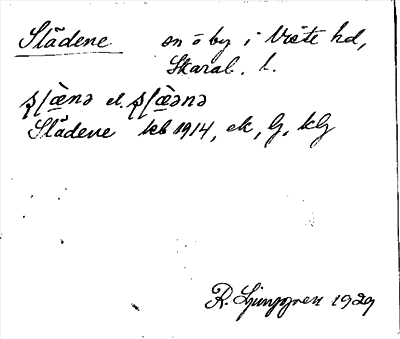 Slädene sn o by i Viste hd,
Skarab. l.
ʂḷæ̀nə el. ʂḷæ̀ənə
Slädene kb 1914, ek, G, kG
R. Ljunggren 1929